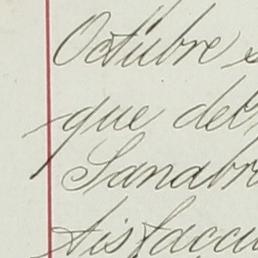 Octubre
que del
Sanabr
tisfacci